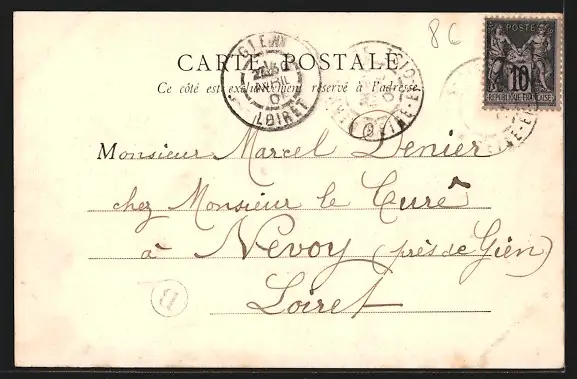 8C
CARTE POSTALE
Ce côté est exclusivement réservé à l'adresse
GIEN
AVRIL
LOIRET
10
REPUBLIQUE FRANÇAISE
Monsieur Marcel Denier
chez Monsieur le Curé
à Nevoy (près de Gien)
Loiret
B